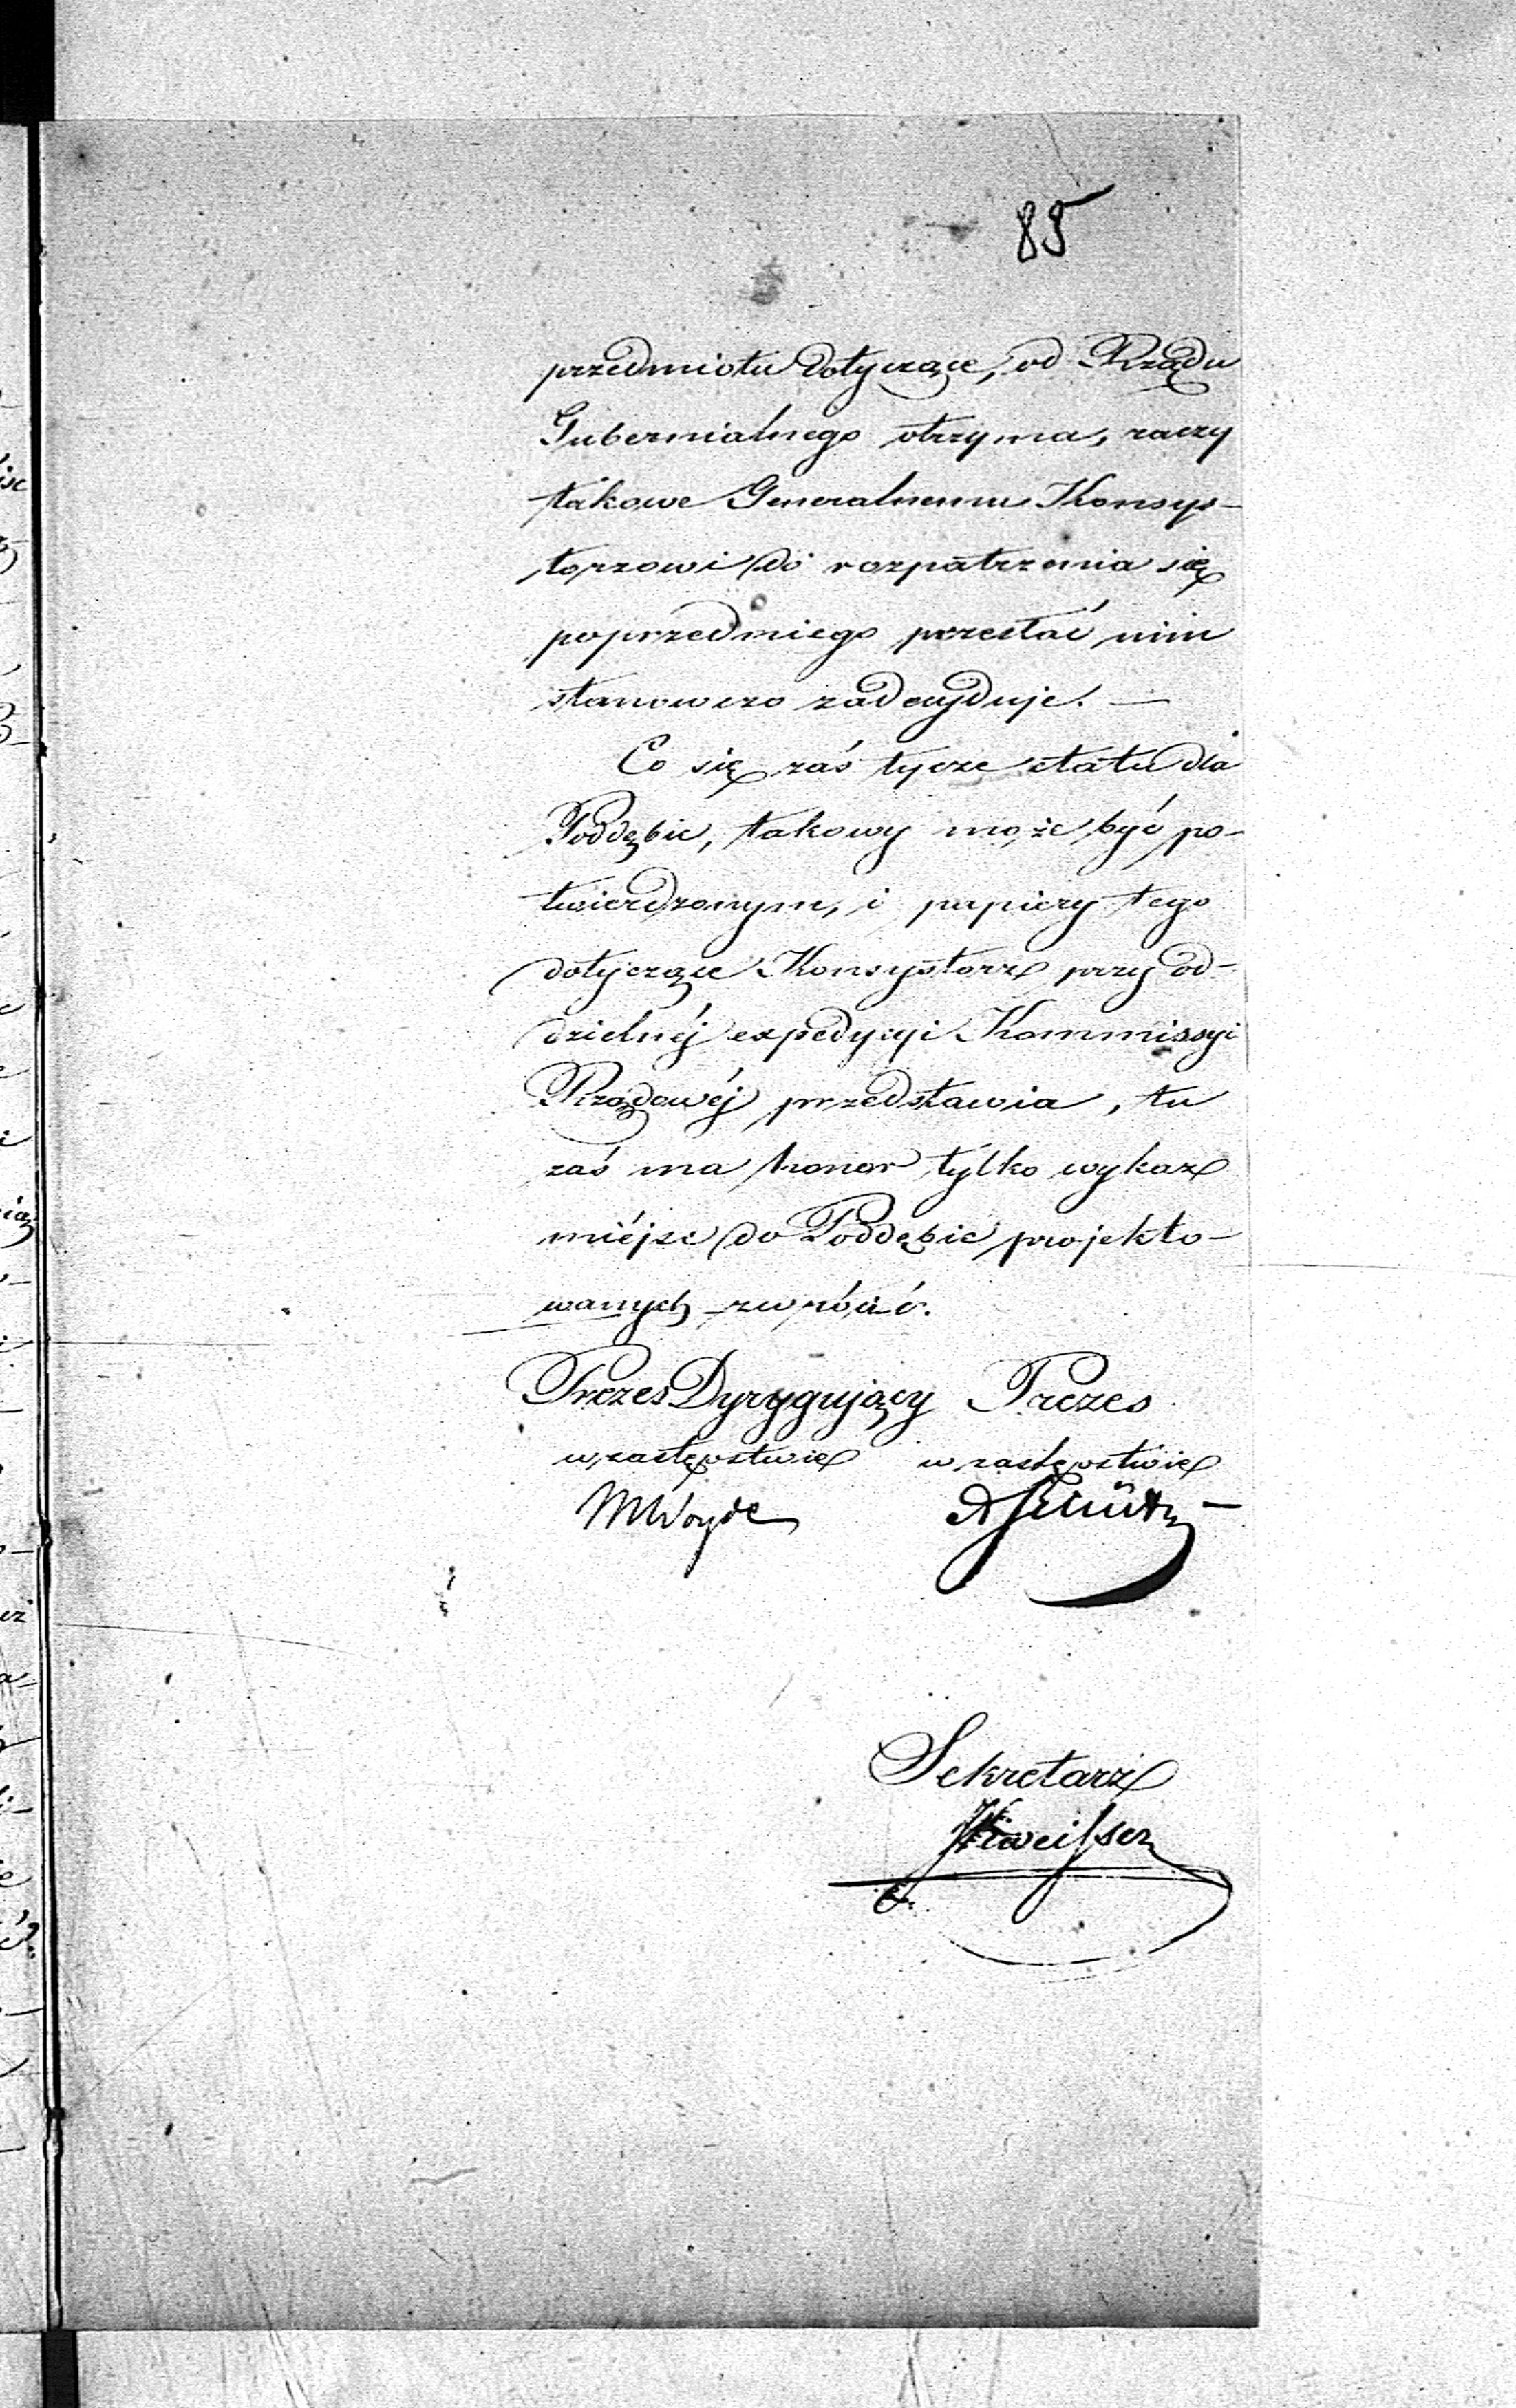 85
przedmiotu dotyczące, od Rządu
Gubernialnego otrzyma, raczy
takowe Generalnemu Konsys-
torzowi do rozpatrzenia się
poprzedniego przesłać nim
stanowczo zadecyduje. —
Co się zaś tycze etatu dla
Poddębic, takowy może być po-
twierdzonym, i papiery tego
dotyczące Konsystorz przy od-
dzielnéj expedycyi Kommissyi
Rządowéj przedstawia, tu
zaś ma honor tylko wykaz
miéjsc do Poddębic projekto-
wanych zwrócić.
Prezes Dyrygujący Prezes
w zastępstwie w zastępstwie
Sekretarz